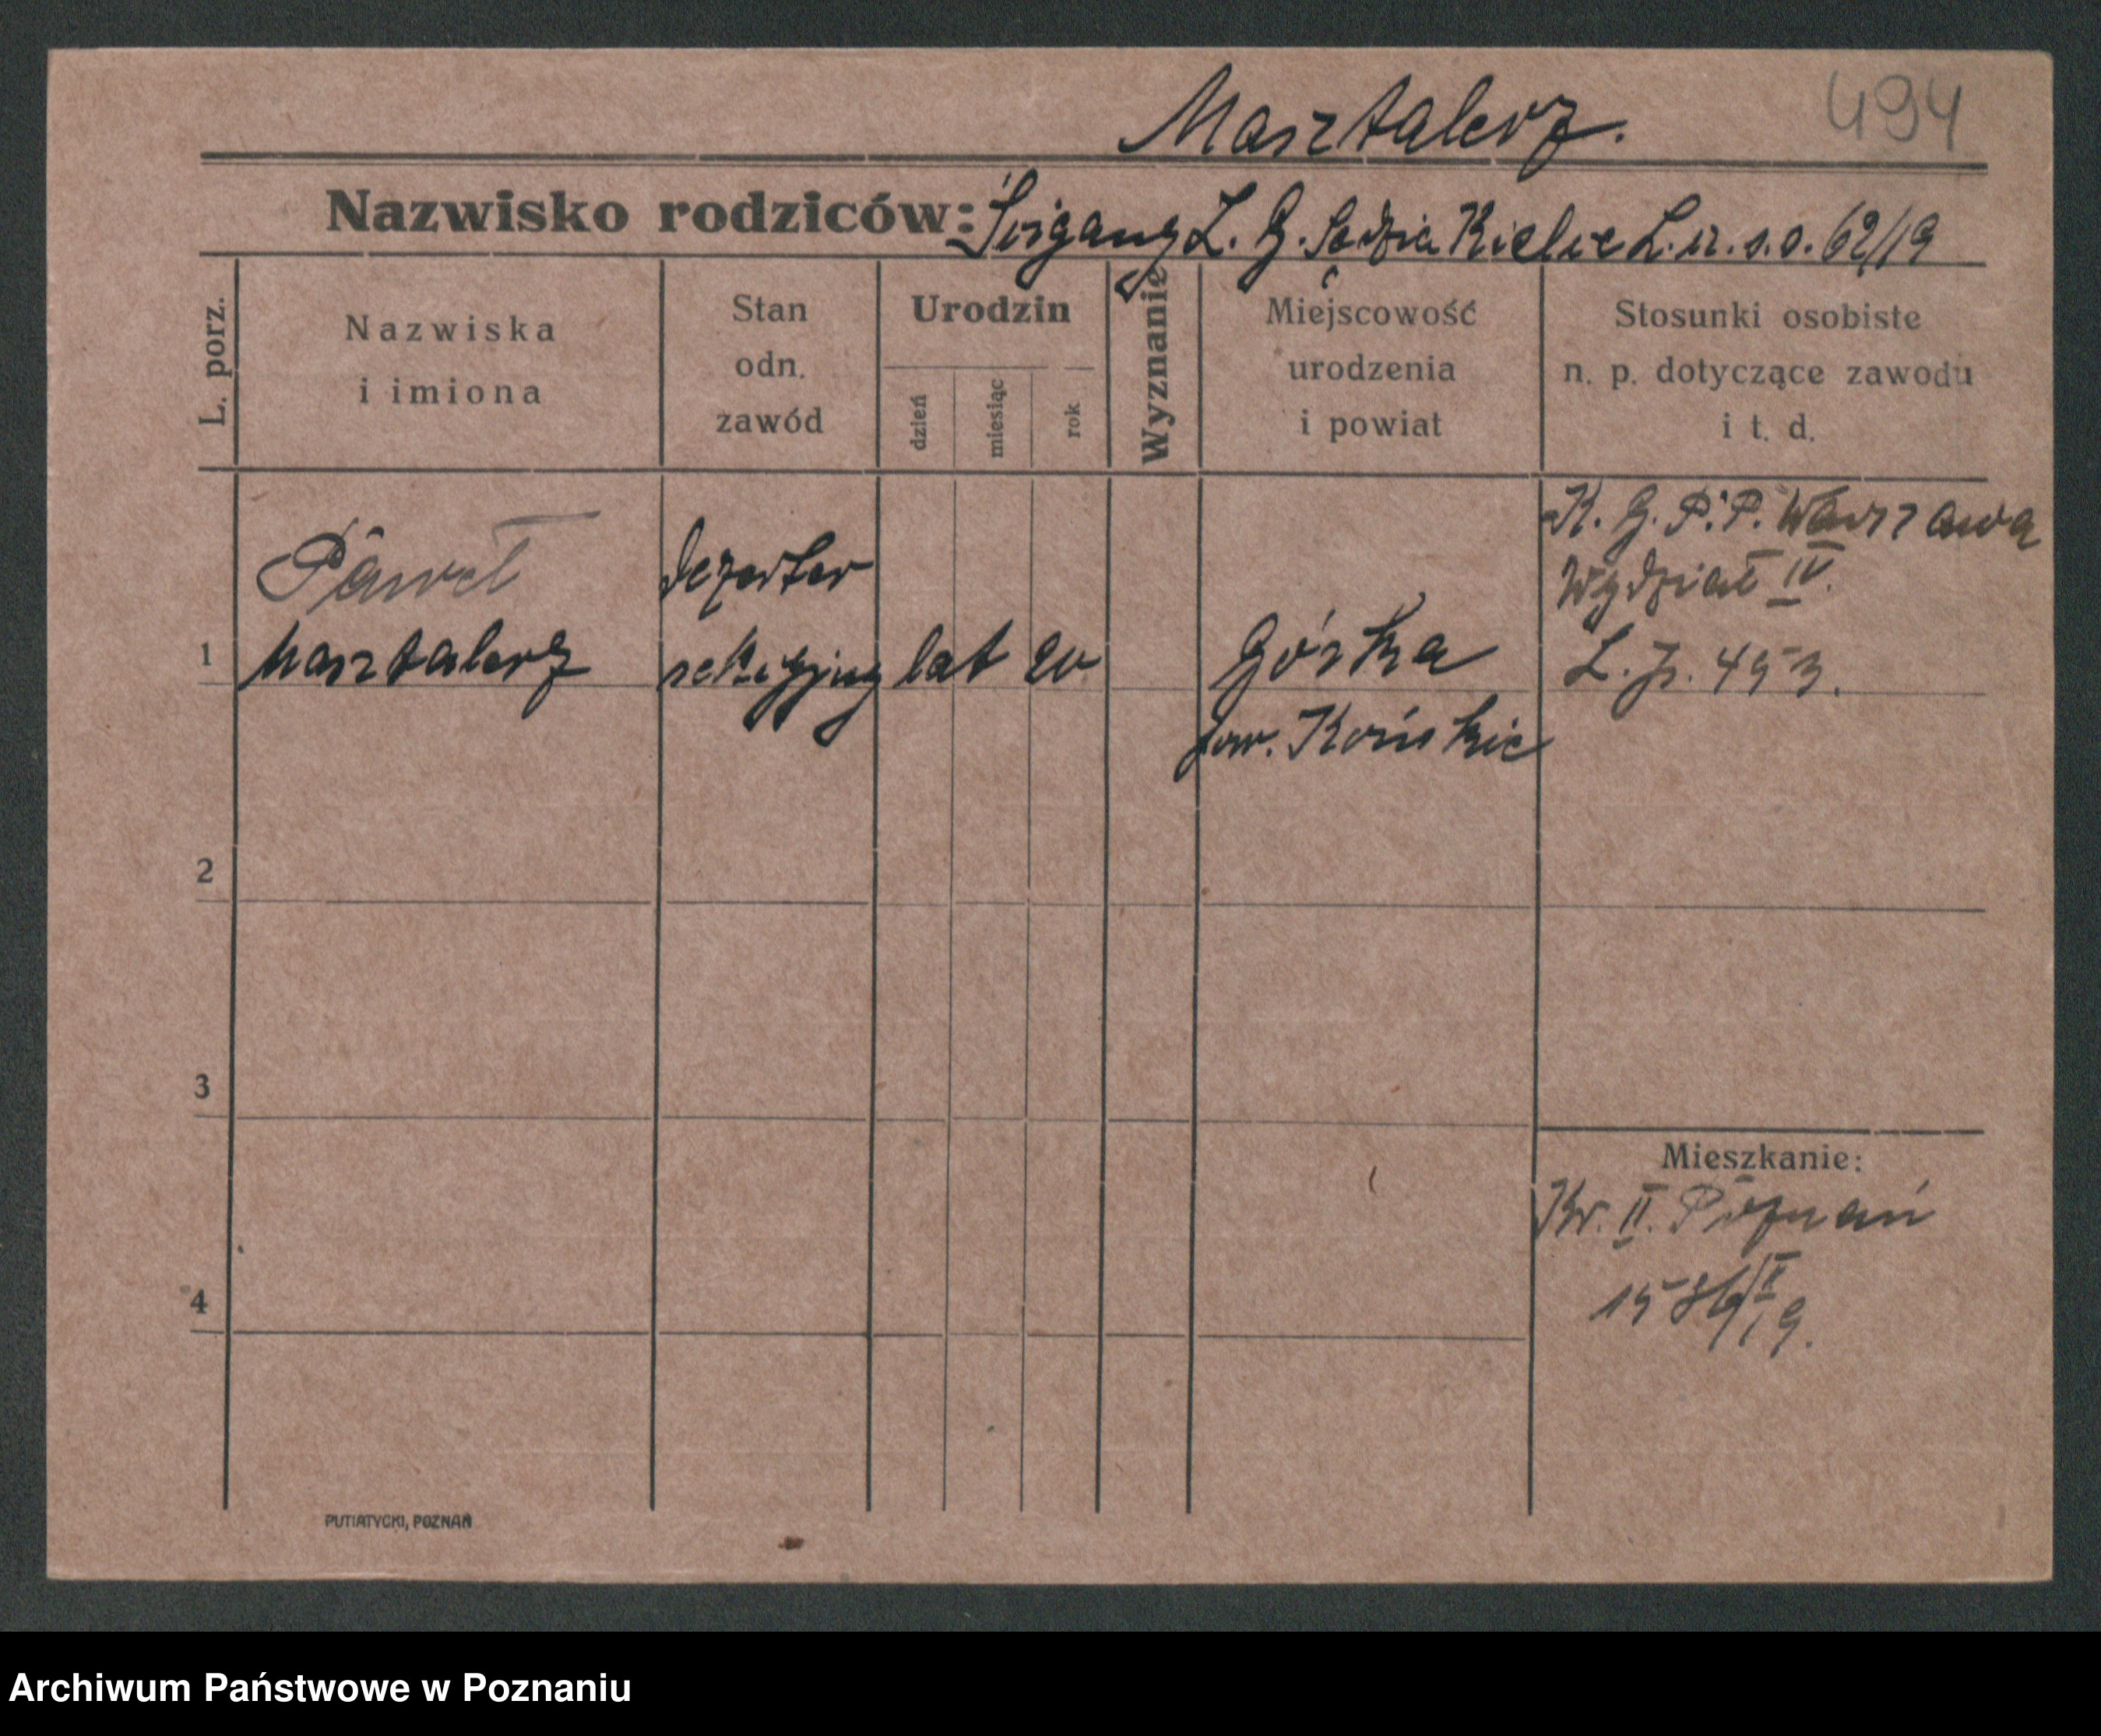 Masztalerz.
494
Nazwisko rodziców: Ścigany L. G. Sędzia Kielce L. 62/19
L. porz.
Nazwiska
i imiona
Stan
odn.
zawód
Urodzin
dzień
miesiąc
rok
Wyznanie
Miejscowość
urodzenia
i powiat
Stosunki osobiste
n. p. dotyczące zawodu
i t. d.
K. G. P. P. Warszawa
Wydział IV.
L. 453.
Paweł
Masztalerz
dezerter
lat 20
Górka
pow. Końskie
1
2
3
4
Mieszkanie:
Kr. II. Poznań
PUTIATYCKI, POZNAŃ
Archiwum Państwowe w Poznaniu